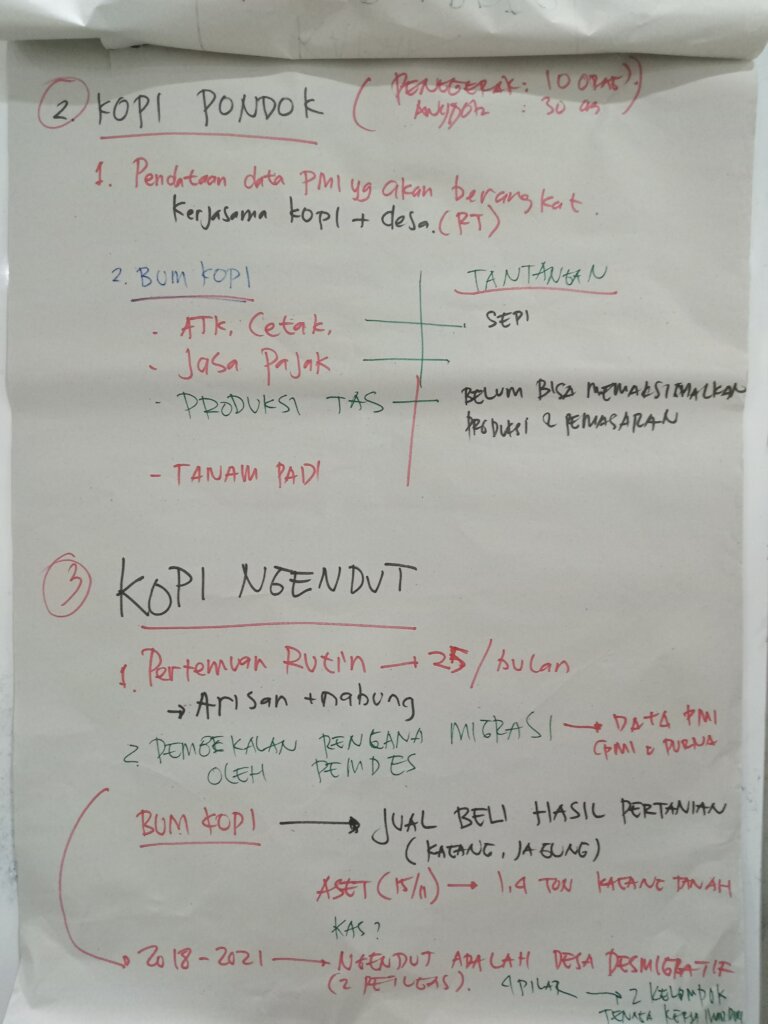 2. KOPI PONDOK ( PENGGERAK : 10 ORAS).
ANGGOTA : 30 as
1. Pendataan data PMI yg akan berangkat.
Kerjasama KOPI + desa. (RT)
2. BUM KOPI
TANTANGAN
- ATK, Cetak,
SEPI
- Jasa Pajak
- PRODUKSI TAS
BELUM BISA MEMAKSIMALKAN
PRODUKSI & PEMASARAN
- TANAM PADI
3 KOPI NGENDUT
1. Pertemuan Rutin → 25 / bulan
→ Arisan + nabung
2. PEMBEKALAN RENCANA MIGRASI → DATA PMI
OLEH PEMDES
CPMI & PURNA
BUM KOPI → JUAL BELI HASIL PERTANIAN
(KACANG, JAGUNG)
ASET (15/11) → 1,4 TON KACANG TANAH
KAS?
2018 - 2021 → NGENDUT ADALAH DESA DESMIGRATIF
(2 PETUGAS). 4 PILAR → 2 KELOMPOK
TENAGA KERJA